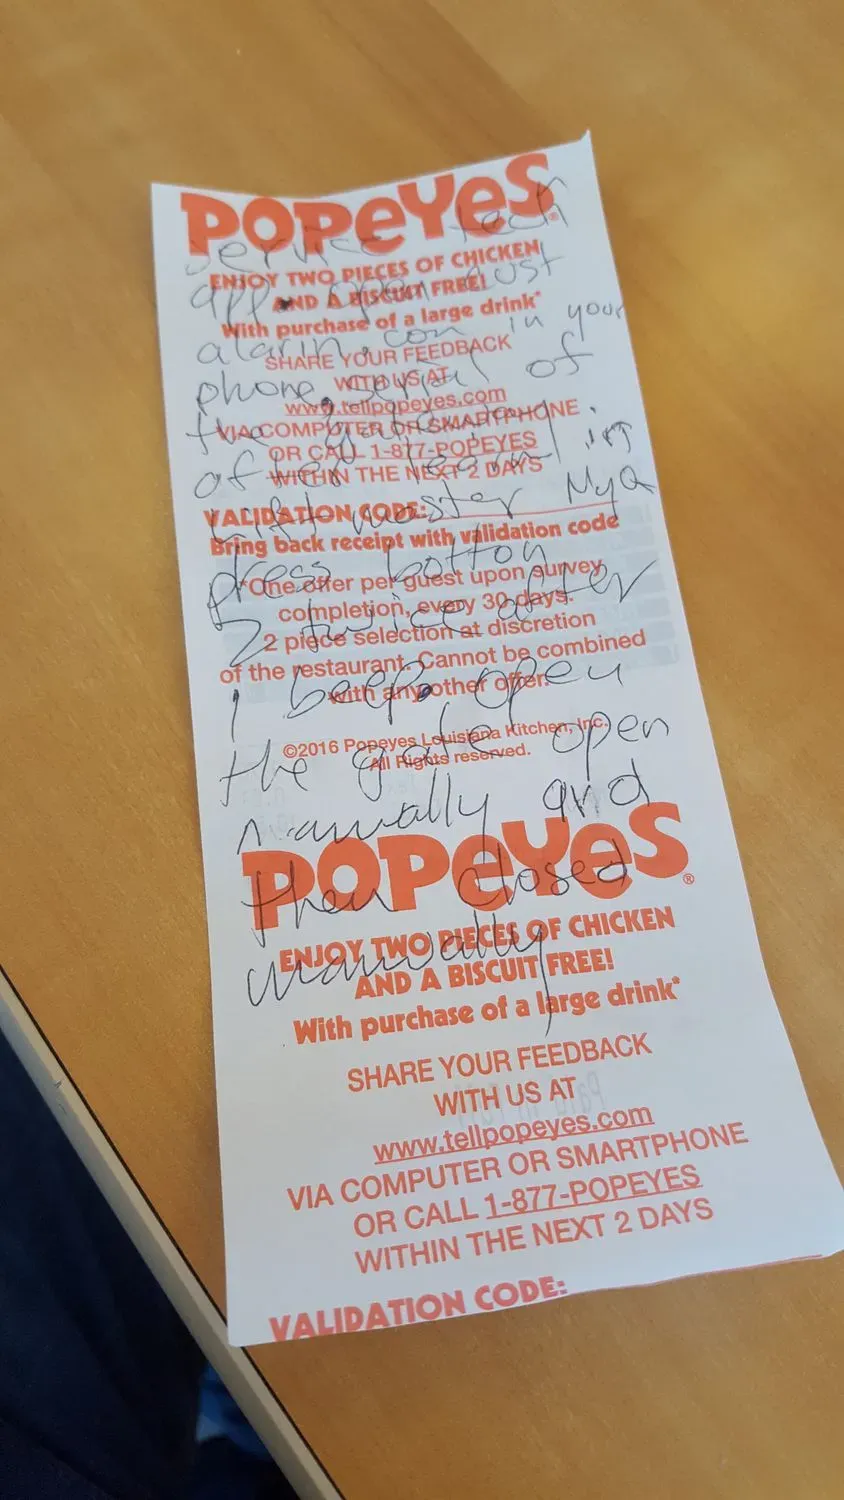 POPEYES®
service tech
ENJOY TWO PIECES OF CHICKEN
AND A BISCUIT FREE!
app. open just
With purchase of a large drink*
alarm.com in your
SHARE YOUR FEEDBACK
WITH US AT
phone, serial of
www.tellpopeyes.com
VIA COMPUTER OR SMARTPHONE
the
OR CALL 1-877-POPEYES
after
WITHIN THE NEXT 2 DAYS
VALIDATION CODE:
Lift master MyQ
Bring back receipt with validation code
press botton
*One offer per guest upon survey
completion, every 30 days.
2 twice after
2 piece selection at discretion
of the restaurant. Cannot be combined
with any other offer.
1 beep, open
©2016 Popeyes Louisiana Kitchen, Inc.
All Rights reserved.
the gate open
manually and
POPEYES®
then closed
manually
ENJOY TWO PIECES OF CHICKEN
AND A BISCUIT FREE!
With purchase of a large drink*
SHARE YOUR FEEDBACK
WITH US AT
www.tellpopeyes.com
VIA COMPUTER OR SMARTPHONE
OR CALL 1-877-POPEYES
WITHIN THE NEXT 2 DAYS
VALIDATION CODE: